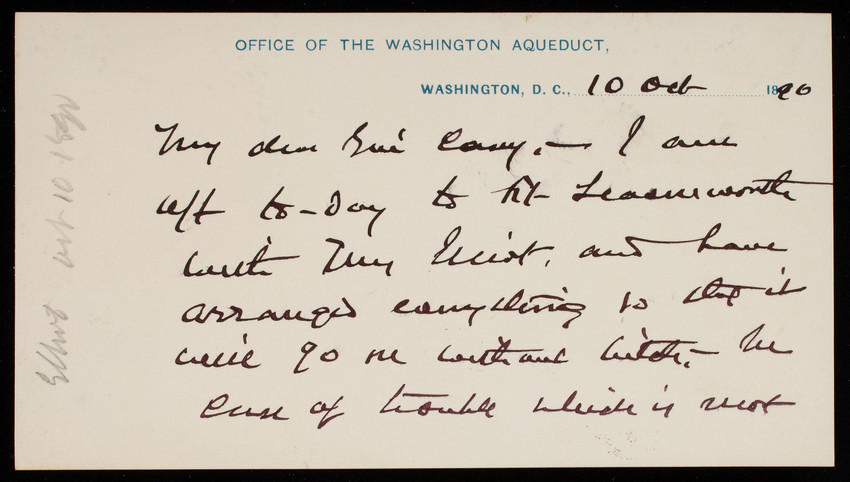 OFFICE OF THE WASHINGTON AQUEDUCT,
WASHINGTON, D. C., 10 Oct 1890
My dear Genl Casey, – I am
off to-Day to Ft Leavenworth
with My Eliot, and have
arranged everything so that it
will go on without hitch, – In
case of trouble which is not
Elliot Oct 10 1890